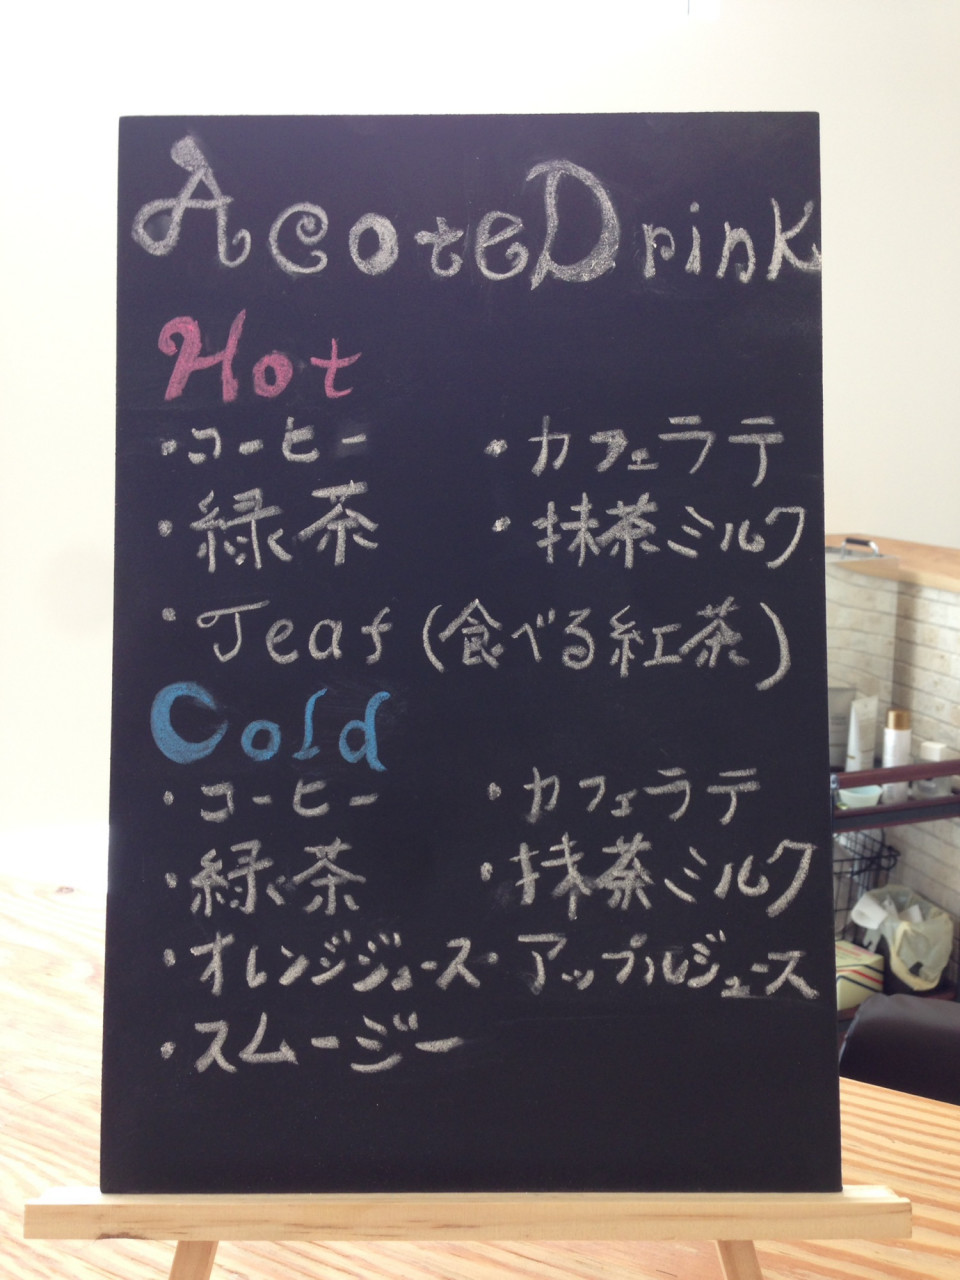 AcoteDrink
Hot
・コーヒー ・カフェラテ
・緑茶 ・抹茶ミルク
・Teaf (食べる紅茶)
Cold
・コーヒー ・カフェラテ
・緑茶 ・抹茶ミルク
・オレンジジュース ・アップルジュース
・スムージー